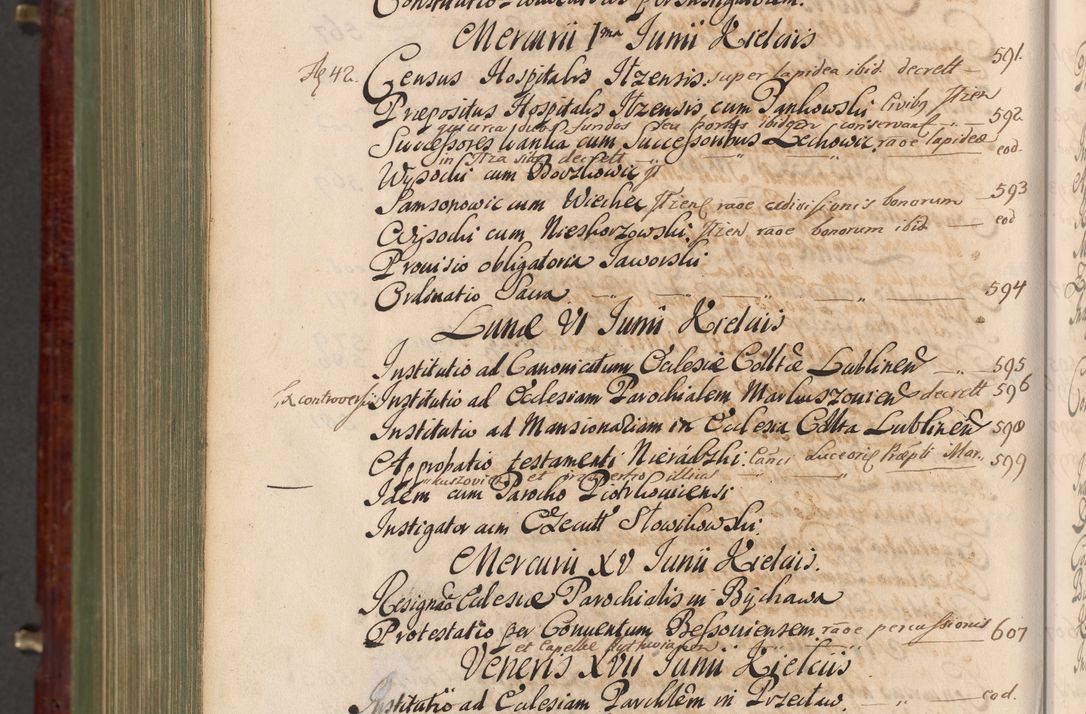 Mercurii 1ma Junii Kielciis
Ag 42. Census Hospitalis Ilzensis super lapidea ibid. decrett — 591.
Præpositus Hospitalis Ilzensis cum Pankowski Civibq Ilzen
qui circa fundos seu ibidem conservan — 592
Successores Wantia cum Successoribus Lechowic. raõe lapideæ
in Ilza sitæ decrett — eod.
Wysocki cum Borzkowic
Samsonowic cum Wiecha Ilzens raõe divisionis bonorum — 593
Wysocki cum Nieskorzowski Ilzen raõe bonorum ibid — eod
Provisio obligatoria Jaworski
Ordinatio Sacra — 594
Lunæ VI Junii Kielciis
Institutio ad Canonicatum Ecclesiæ Colltæ Lublinen — 595
Ex controversii Institutio ad Ecclesiam Parochialem Markuszovien decrett 596
Institutio ad Mansionariam in Ecclesia Collta Lublinen 598
Approbatio testamenti Nierádzki Canci Luceoris Præpti Mar., 599
kuszovien et pro illius
Idem cum Parocho Piotrkoviensi
Instigator cum Execut Slowikowski
Mercurii XV Junii Kielciis.
Resignaõ Ecclesiæ Parochialis in Bychawa
Protestatio per Conventum Bessoviensem raõe percussionis 607
et Capellæ
Veneris XVII Junii Kielciis
Institutio ad Ecclesiam Parochlem in Przeclaw. — eod.